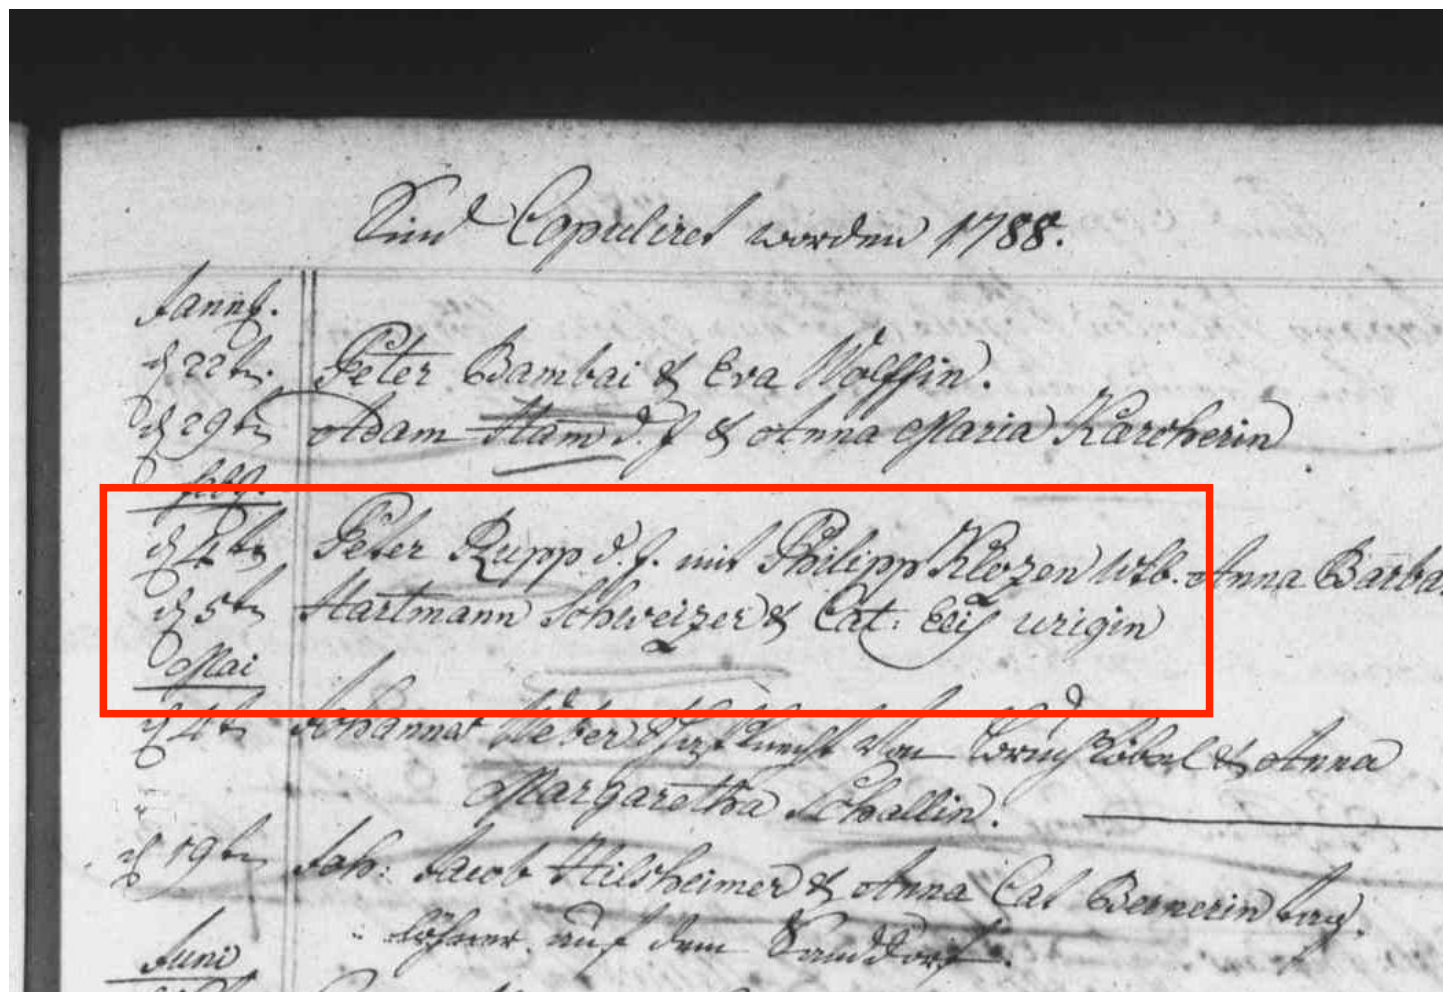 Sind Copuliret worden 1788.
Jann.
d 22t. Peter Bambai & Eva Wolffin.
d 29t Adam Stam d. J & Anna Maria Karcherin
febr.
d 4t Peter Rupp d. J. mit Philipp Klozen Wtb. Anna Barba
d 5t Hartmann Schweizer & Cat: Elis Urigin
Mai
d 4t Johannes Weber von Bruchköbel & Anna
Margaretha Schallin.
d 19t Joh: Jacob Hilsheimer & Anna Cat Bernerin
auf dem Sanddorf.
Juni